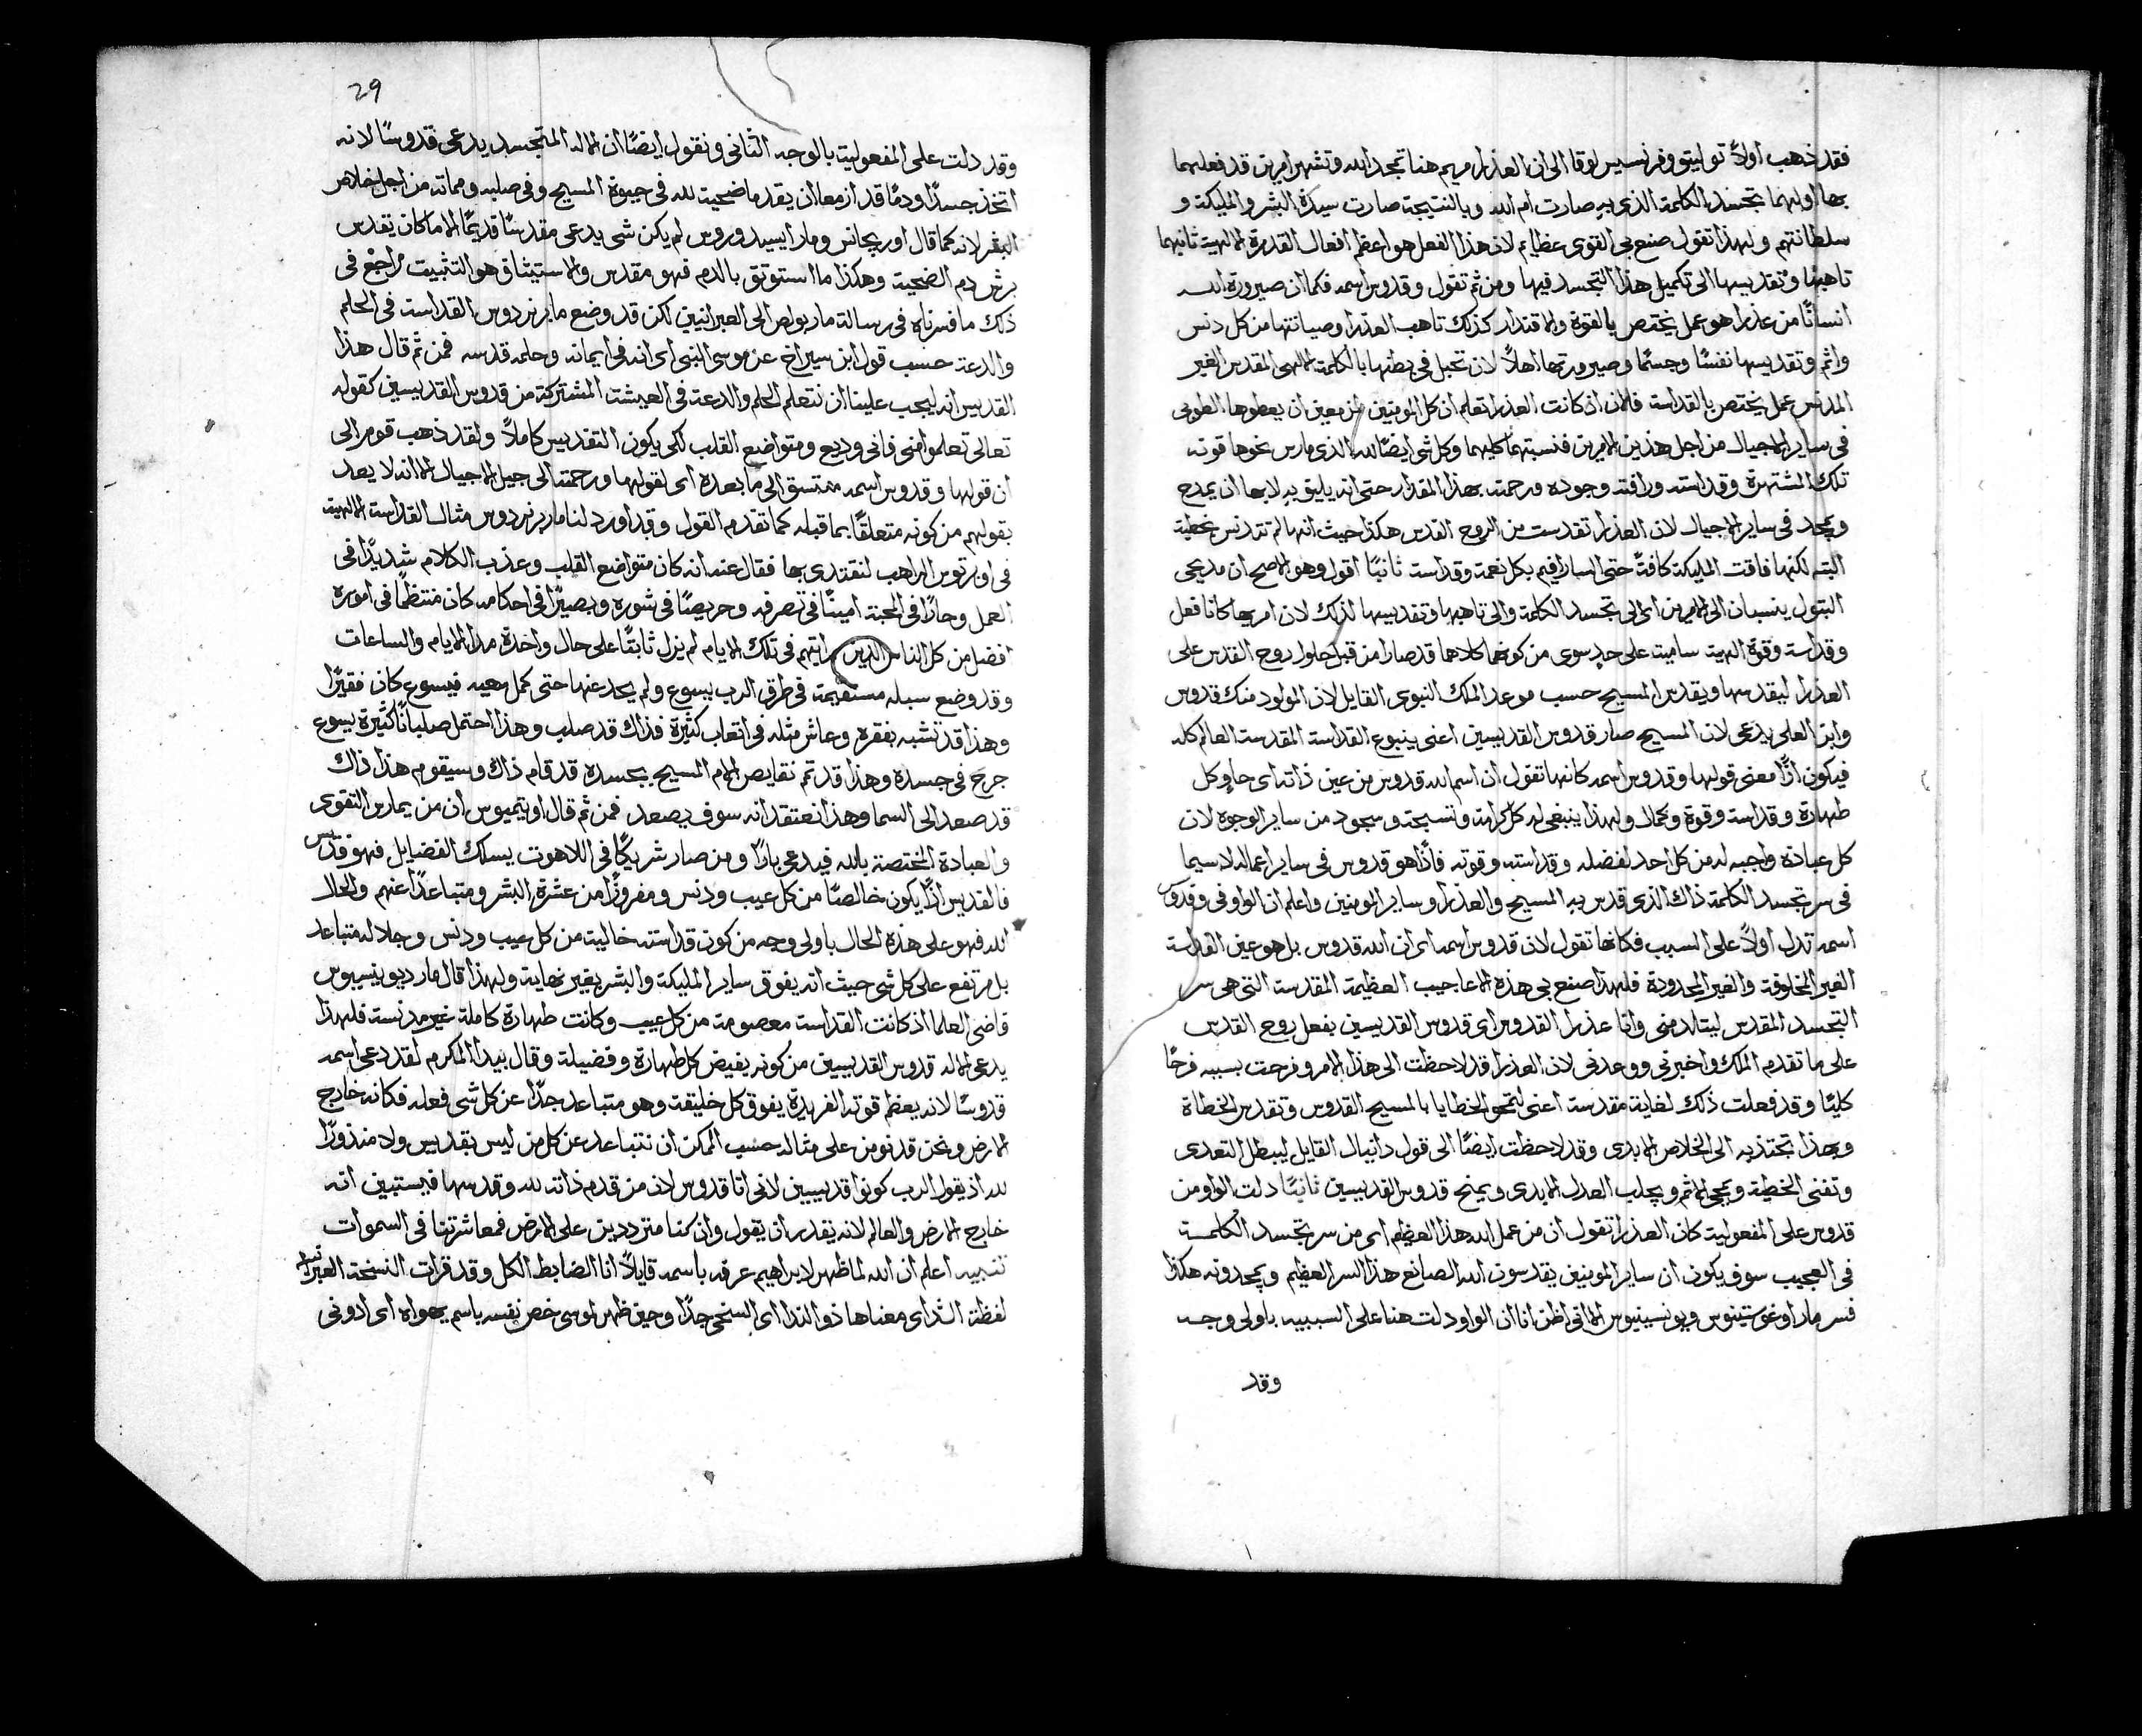 فقد ذهب اولاً توليتو وفرنسيس لوقا الى ان العذرا مريم هنا تمجد الله وتشهر امرين قد فعلهما
بها اولهما تجسد الكلمة الذى به صارت ام الله وبالنتيجة صارت سيدة البشر والمليكة و
سلطانتهم ولهذا تقول صنع بى القوى عظايم لان هذا الفعل هو اعظم افعال القدرة الالهية ثانيهما
تاهبها وتقديسها الى تكميل هذا التجسد فيها ومن ثم تقول وقدوس اسمه فكما ان صيرورة الله
انسانًا من عذرا هو عمل يختص بالقوة والاقتدار كذلك تاهب العذرا وصيانتها من كل دنس
واثم وتقديسها نفسًا وجسمًا وصيرورتها اهلاً لان تحبل فى بطنها بالكلمة الالهى المقدس الغير
المدنس عمل يختص بالقداسة فلان اذ كانت العذرا تعلم ان كل المومنين مزمعين ان يعطوها الطوبى
فى ساير الاجيال من اجل هذين الامرين فنسبتهما كليهما وكل شى ايضًا لله الذى مارس نحوها قوته
تلك المشتهرة وقداسته ورافته وجوده ورحمته بهذا المقدار حتى انه يليق به لا بها ان يمدح
ويمجد فى ساير الاجيال لان العذرا تقدست من الروح القدس هكذا حيث انها لم تتدنس بخطية
البته لكنها فاقت المليكة كافةً حتى السارافيم بكل نعمة وقداسة ثانيًا اقول وهو الاصح ان مديحى
البتول ينسبان الى الامرين اى الى تجسد الكلمة والى تاهبها وتقديسها لذلك لان امريها كانا فعل
وقداسة وقوة الهية سامية على حد سوى من كونهما كلاهما قد صارا من قبل حلول روح القدس على
العذرا ليقدسها ويقدس المسيح حسب موعد الملك النبوى القايل لان المولود منك قدوس
وابن العلى يدعى لان المسيح صار قدوس القديسين اعنى ينبوع القداسة المقدسة العالم كله
فيكون اذًا معنى قولها وقدوس اسمه كانها تقول ان اسم الله قدوس من عين ذاته اى حاو كل
طهارة وقداسة وقوة وكمال ولهذا ينبغى له كل كرامة وتسبحة وسجود من ساير الوجوه لان
كل عبادة واجبه له من كل احد لفضله وقداسته وقوته فاذًا هو قدوس فى ساير اعماله لا سيما
فى سر تجسد الكلمة ذاك الذى قدس به المسيح والعذرا وساير المومنين واعلم ان الواو فى وقدوس
اسمه تدل اولاً على السبب فكانها تقول لان قدوس اسمه اى ان الله قدوس بل هو عين القداسة
الغير المخلوقة والغير المحدودة فلهذا صنع بى هذه الاعاجيب العظيمة المقدسة التى هى سر
التجسد المقدس ليتالد منى وانا عذرا القدوس اى قدوس القديسين بفعل روح القدس
على ما تقدم الملك واخبرنى ووعدنى لان العذرا قد لاحظت الى هذا الامر وفرحت بسببه فرحًا
كليًا وقد فعلت ذلك لغاية مقدسة اعنى لتمحو الخطايا بالمسيح القدوس وتقدس الخطاة
وبهذا تجتذبه الى الخلاص الابدى وقد لاحظت ايضًا الى قول دانيال القايل ليبطل التعدى
وتفنى الخطية ويمحى الاثم ويجلب العدل الابدى ويمنح قدوس القديسين ثانيًا دلت الواو من
قدوس على المفعولية كان العذرا تقول ان من عمل الله هذا العظيم اى من سر تجسد الكلمة
فى العجيب سوف يكون ان ساير المومنين يقدسون الله الصانع هذا السر العظيم ويمجدونه هكذا
فسر مار اوغوستينوس وديونيسينوس الا انى اظن انا ان الواو دلت هنا على السببيه باولى وجه
وقد
29
وقد دلت على المفعولية بالوجه الثانى ونقول ايضًا ان الاله المتجسد يدعى قدوسًا لانه
اتخذ جسدًا ودمًا قد ازمعا ان يقدما ضحية لله فى حيوة المسيح وفى صلبه ومماته من اجل خلاص
البشر لانه كما قال اوريجانس ومار ايسيدوروس لم يكن شى يدعى مقدسًا قديمًا الا ما كان يقدس
برش دم الضحية وهكذا ما استوثق بالدم فهو مقدس والاستيثاق هو التثبيت راجع فى
ذلك ما فسرناه فى رسالة مار بولص الى العبرانيين لكن قد وضع مار برنردوس القداسة فى الحلم
والدعة حسب قول ابن سيراخ عن موسى النبى اى انه فى ايمانه وحلمه قدسه فمن ثم قال هذا
القديس انه ليجب علينا ان نتعلم الحلم والدعة فى العيشة المشتركة من قدوس القديسين كقوله
تعالى تعلموا منى فانى وديع ومتواضع القلب لكى يكون التقديس كاملاً ولقد ذهب قوم الى
ان قولها وقدوس اسمه متسق الى ما بعده اى لقولها ورحمته الى جيل الاجيال الا انه لا يعد
بقولهم من كونه متعلقًا بما قبله كما تقدم القول وقد اورد لنا مار برنردوس مثال القداسة الالهية
فى اوبرتوس الراهب لنقتدى بها فقال عنه انه كان متواضع القلب وعذب الكلام شديدًا فى
العمل وحارًا فى المحبة امينًا فى تصرفه وحريصًا فى شوره وبصيرًا فى احكامه كان منتظمًا فى اموره
افضل من كل الناس الذين رايتهم فى تلك الايام لم يزل ثابتًا على حال واحدة مدا الايام والساعات
وقد وضع سبله مستقيمة فى طرق الرب يسوع ولم يحد عنها حتى كمل سعيه فيسوع كان فقيرًا
وهذا قد تشبه بفقره وعاش مثله فى اتعاب كثيرة فذاك قد صلب وهذا احتمل صلبانًا كثيرة يسوع
جرح فى جسده وهذا قد تم نقايص الام المسيح بجسده قد قام ذاك وسيقوم هذا ذاك
قد صعد الى السما وهذا نعتقد انه سوف يصعد فمن ثم قال اوتيميوس ان من يمارس التقوى
والعبادة المختصة بالله فيدعى بارًا ومن صار شريكًا فى اللاهوت يسلك الفضايل فهو قديس
فالقديس اذًا يكون خالصًا من كل عيب ودنس ومفروزًا من عشرة البشر ومتباعدًا عنهم والحال
الله فهو على هذه الحال باولى وجه من كون قداسته خالية من كل عيب ودنس وجلاله متباعد
بل مرتفع على كل شى حيث انه يفوق ساير المليكة والبشر بغير نهاية ولهذا قال مار ديونيسيوس
قاضى العلما اذ كانت القداسة معصومة من كل عيب وكانت طهارة كاملة غير مدنسة فلهذا
يدعى الاله قدوس القديسين من كونه يفيض كل طهارة وفضيلة وقال بيدا المكرم لقد دعى اسمه
قدوسًا لانه يعظم قوته الفريدة يفوق كل خليقة وهو متباعد جدًا عن كل شى فعله فكانه خارج
الارض ونحن قد نومن على مثاله حسب الممكن ان نتباعد عن كل من ليس بقديس ولا منذورًا
لله اذ يقول الرب كونوا قديسين لانى انا قدوس لان من قدم ذاته لله وقدسها فيستبين انه
خارج الارض والعالم لانه يقدر ان يقول وان كنا مترددين على الارض فمعاشرتنا فى السموات
تنبيه اعلم ان الله لما ظهر لابراهيم عرفه باسمه قايلاً انا الضابط الكل وقد قرات النسخة العبرانيه
لفظة الشداى معناها ذو الندا اى السخى جدًا وحين ظهر لموسى خص نفسه باسم يهواه اى ادونى